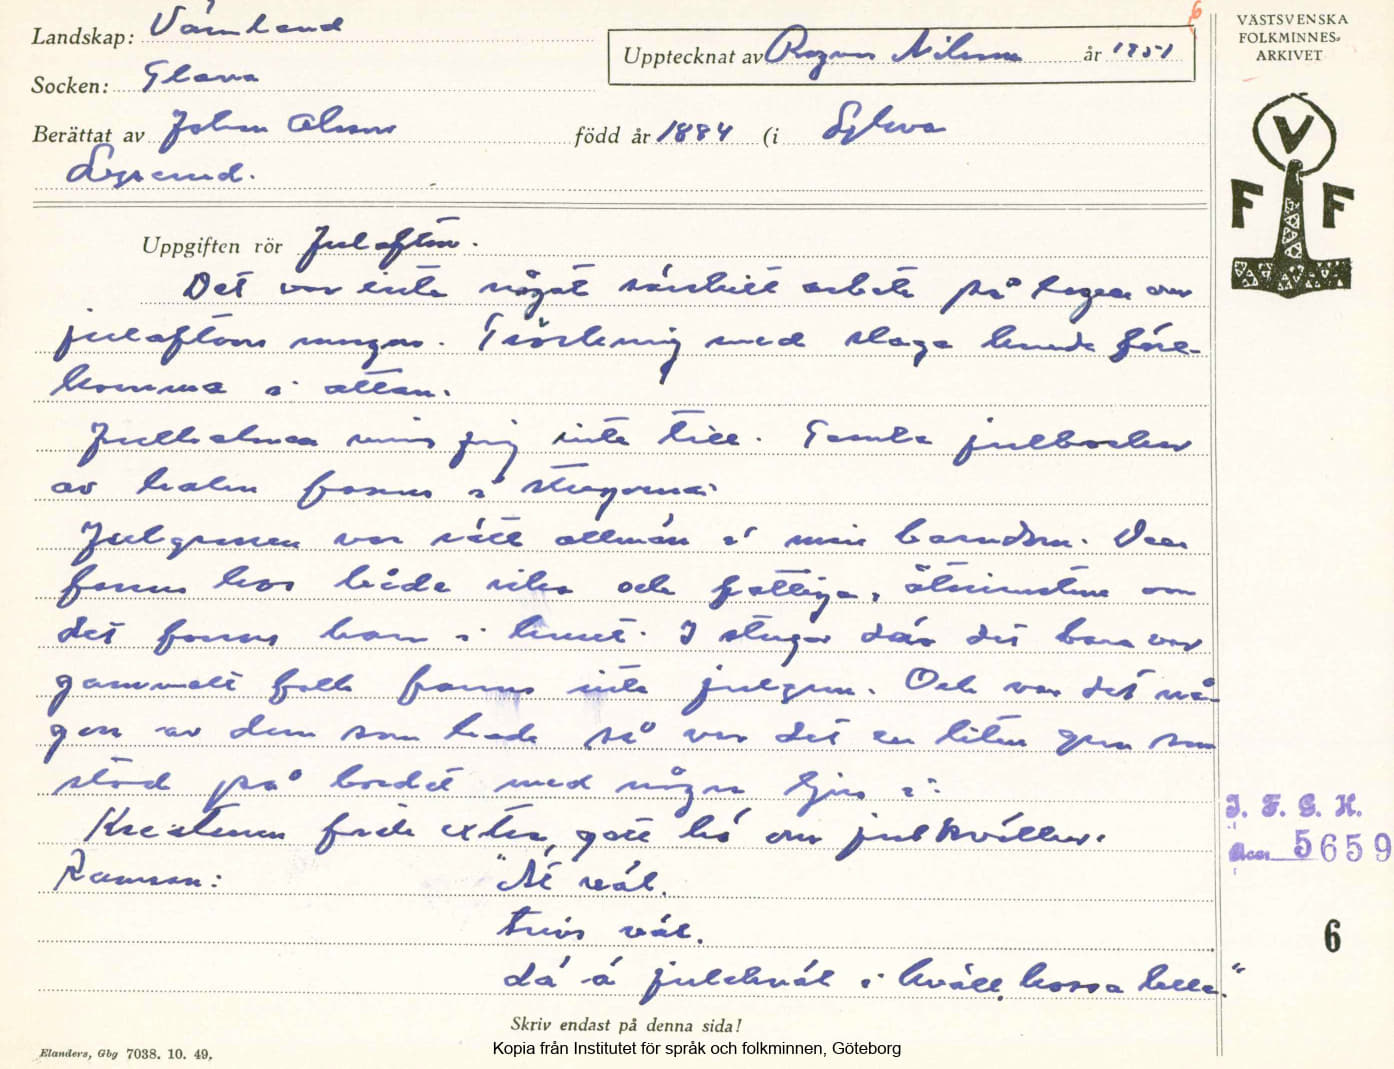 Landskap: Värmland
Socken: Glava
Upptecknat av Ragnar Nilsson år 1951
Berättat av Johan Olsson född år 1884 (i Sylva
6
VÄSTSVENSKA
FOLKMINNES-
ARKIVET
V
F F
Uppgiften rör Julafton.
Det var inte något särskilt arbete på logen om
julaftons morgon. Tröskning med slaga kunde före-
komma i ottan.
Julhalmen minns jag inte till. Gamla julbockar
av halm fanns i stugorna.
Julgranen var rätt allmän i min barndom. Den
fanns hos både rika och fattiga, åtminstone om
det fanns barn i huset. I stugor där det bara var
gammalt folk fanns inte julgran. Och var det nå-
gon av dem som hade så var det en liten gran som
stod på bordet med några ljus i.
Kreaturen fick extra gott hö om julkvällen.
Ramsan: "Ät väl.
trivs väl.
dä ä julekväl i kväll, kossa lella."
I. F. G. H.
Acc. 5659
6
Skriv endast på denna sida!
Elanders, Gbg 7038. 10. 49.
Kopia från Institutet för språk och folkminnen, Göteborg